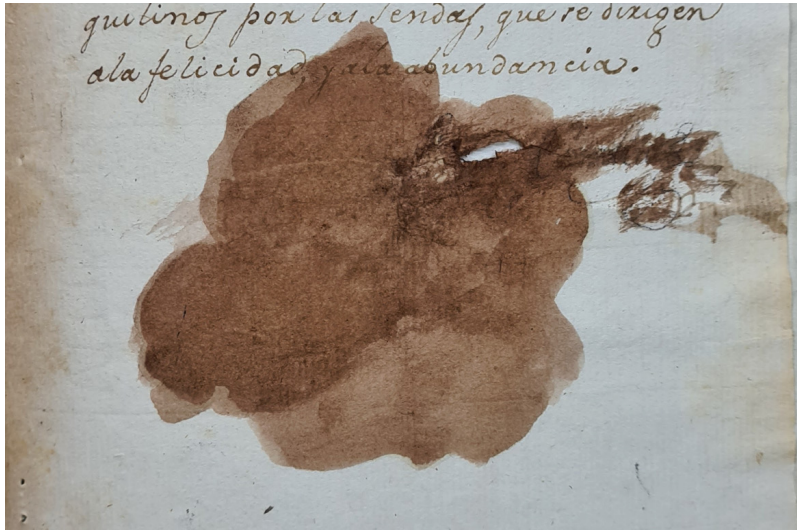 quilinos por las sendas, que se dirigen
ala felicidad, y ala abundancia.